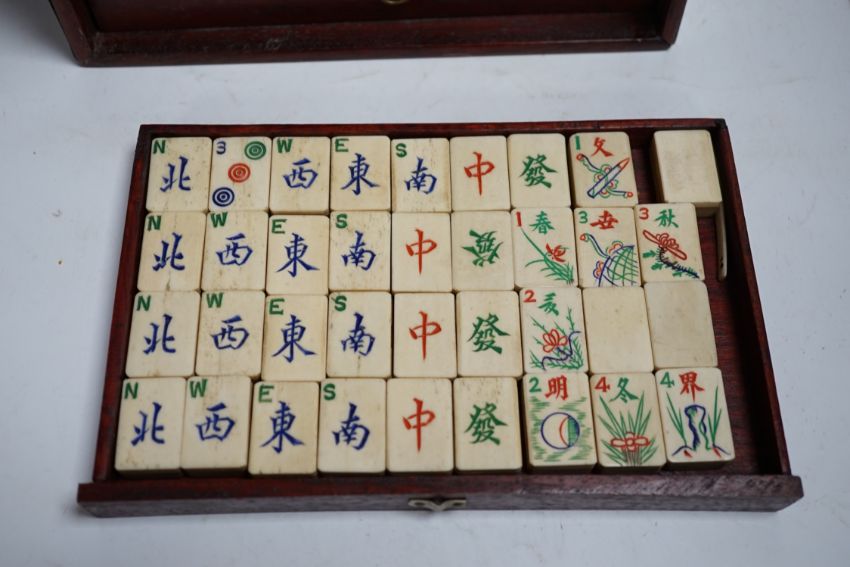 N 北 3 W 西 E 東 S 南 中 發 1 文
N 北 W 西 E 東 S 南 中 發 1 春 3 世 3 秋
N 北 W 西 E 東 S 南 中 發 2
N 北 W 西 E 東 S 南 中 發 2 明 4 冬 4 界